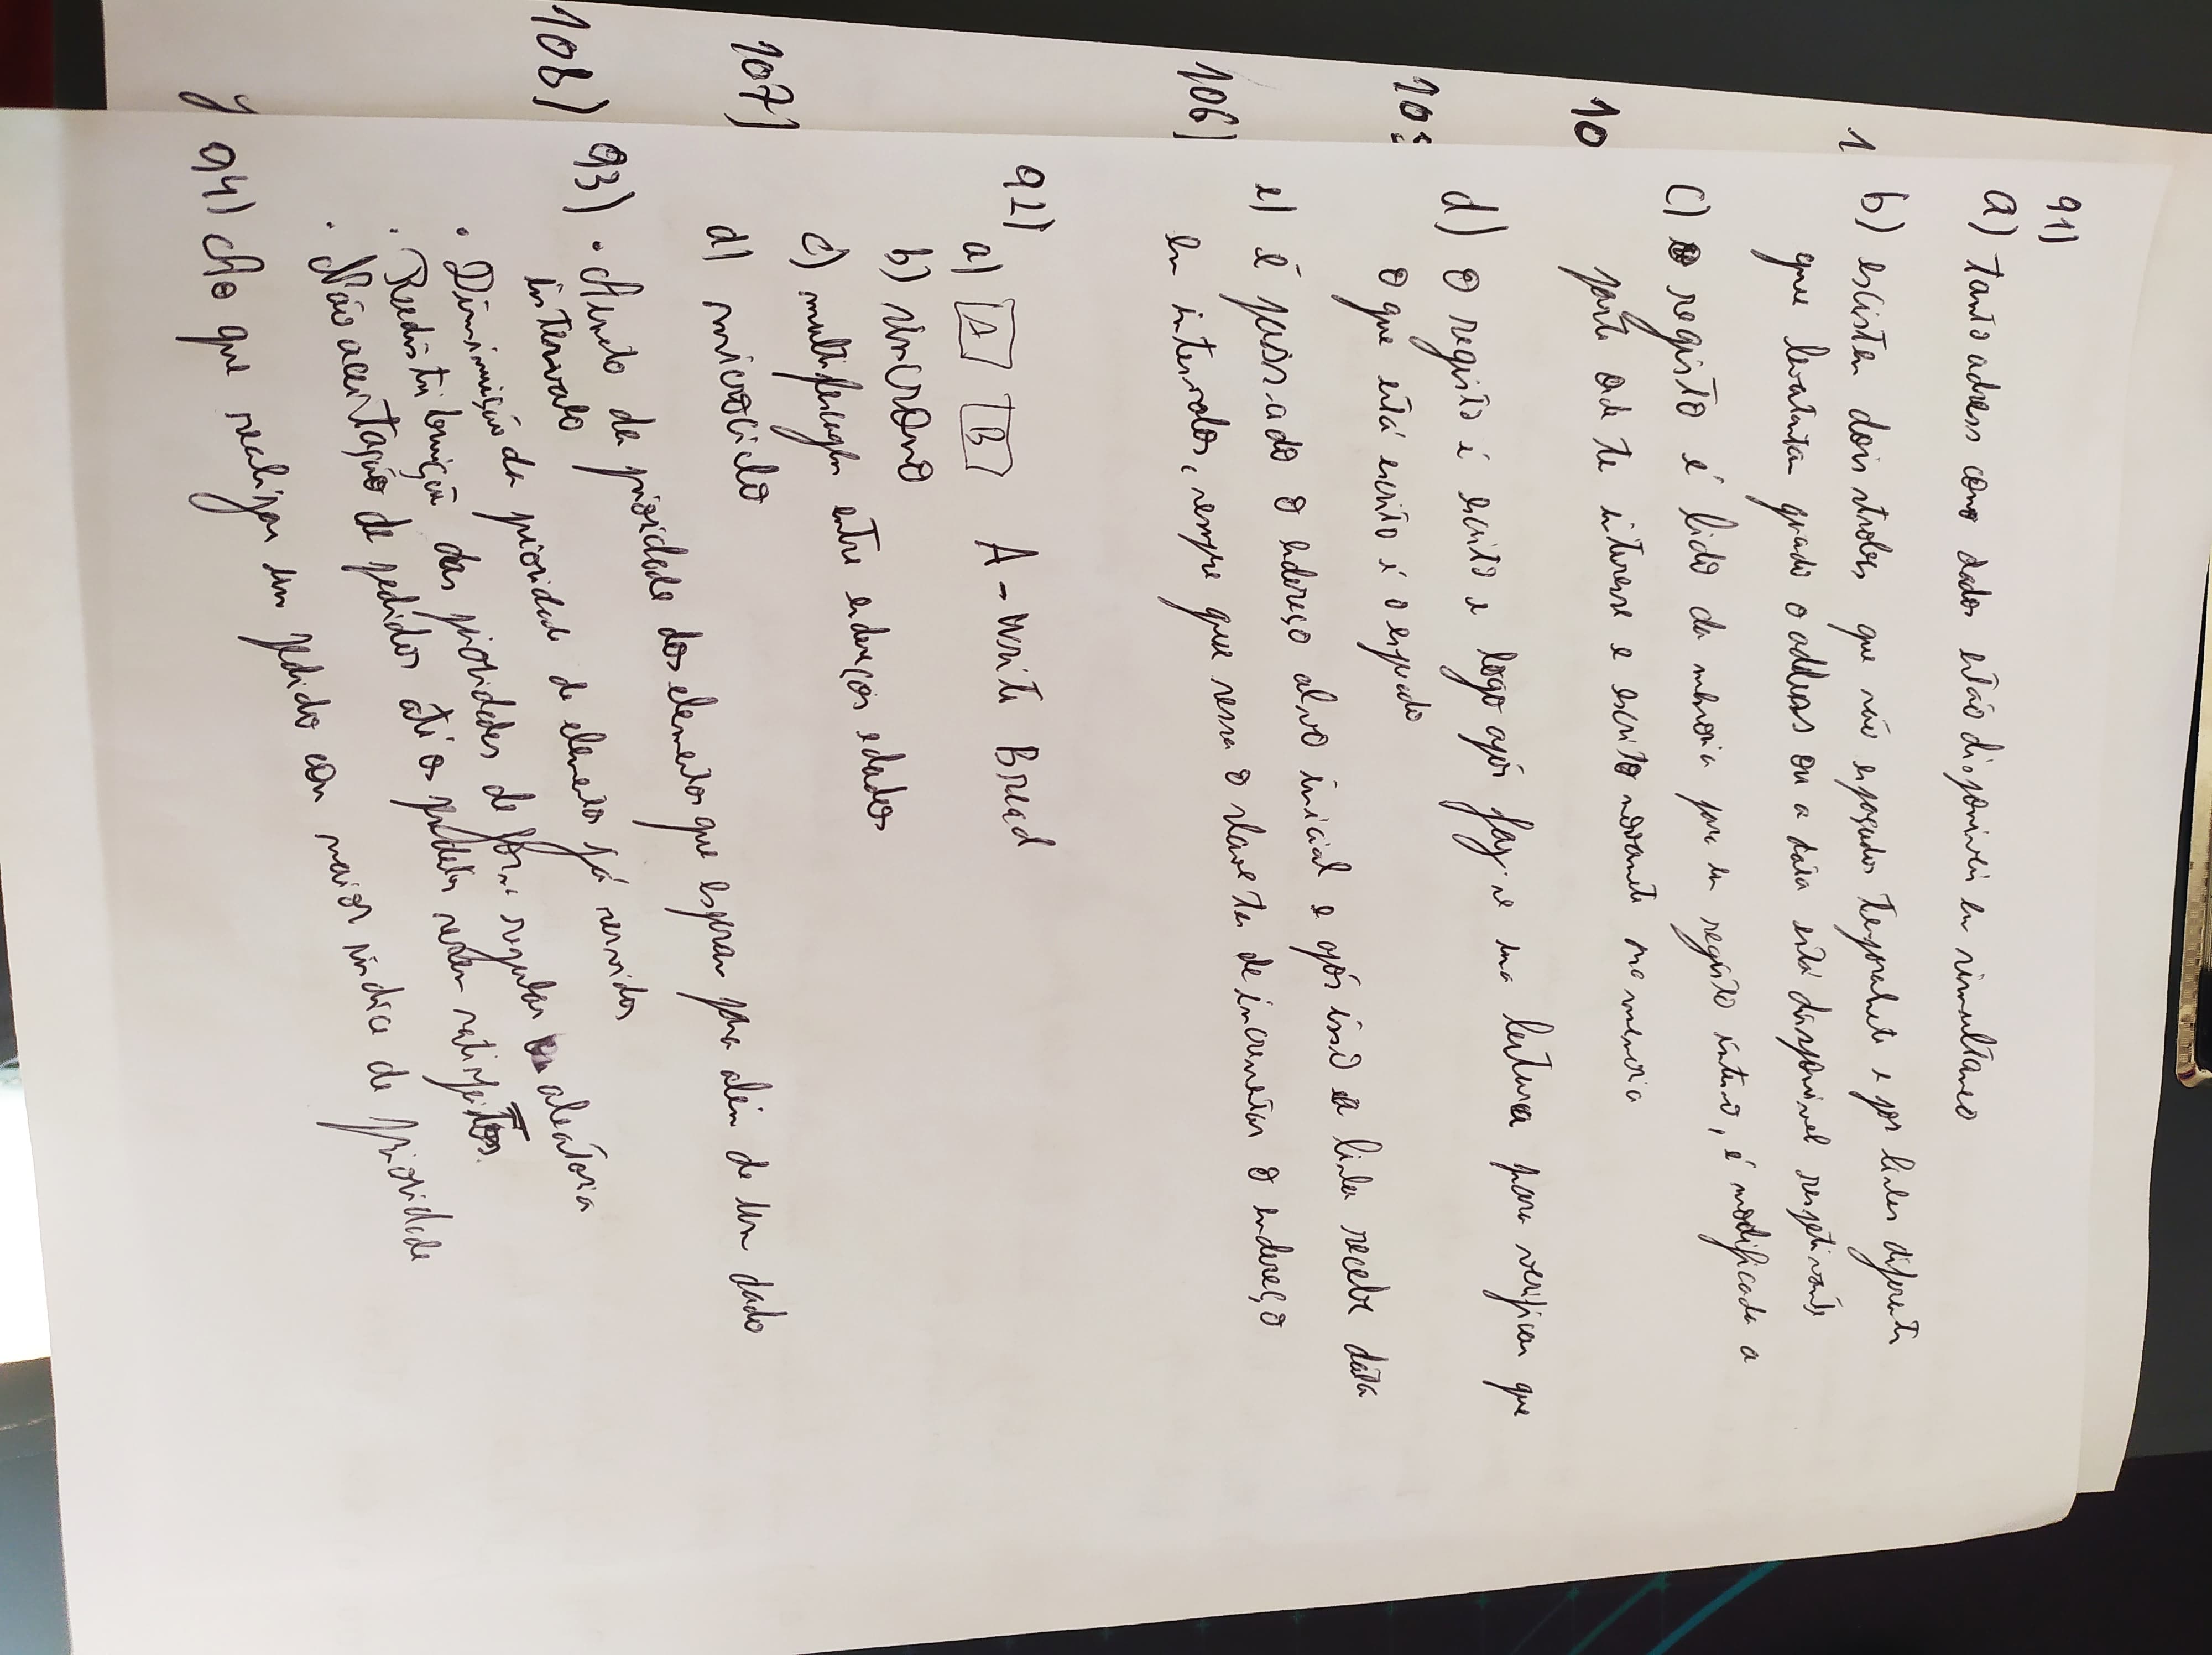 91)
a) tanto adress como dados estão disponiveis em simultaneo
b) existem dois strobes que são espaçados temporalmente e por linhas diferentes
que levantam quado o address ou a data está disponivel respetivamente
c) o registo é lido da memoria para um registo interno, é modificada a
parte onde tem interesse e escrito novamente na memoria
d) O registo é escrito e logo após faz-se uma leitura para verificar que
O que está escrito é o esperado
e) é passado o endereço alvo inicial e após isso a linha recebe data
em intervalos, sempre que ressa o slave tem de incrementar o endereço
92)
a) A B A - Write B read
b) sincrono
c) multiplexagem entre endereços e dados
d) microciclo
93) • Aumento da prioridade dos elementos que esperam para além de um dado
intervalo
• Diminuição da prioridade de elementos já servidos
• Redistribuição das prioridades de forma regular ou aleatoria
• Não aceitação de pedidos até os pendentes serem satisfeitos.
94) Ao que realizar um pedido com maior indice de prioridade
1
10
105
106)
107)
108)